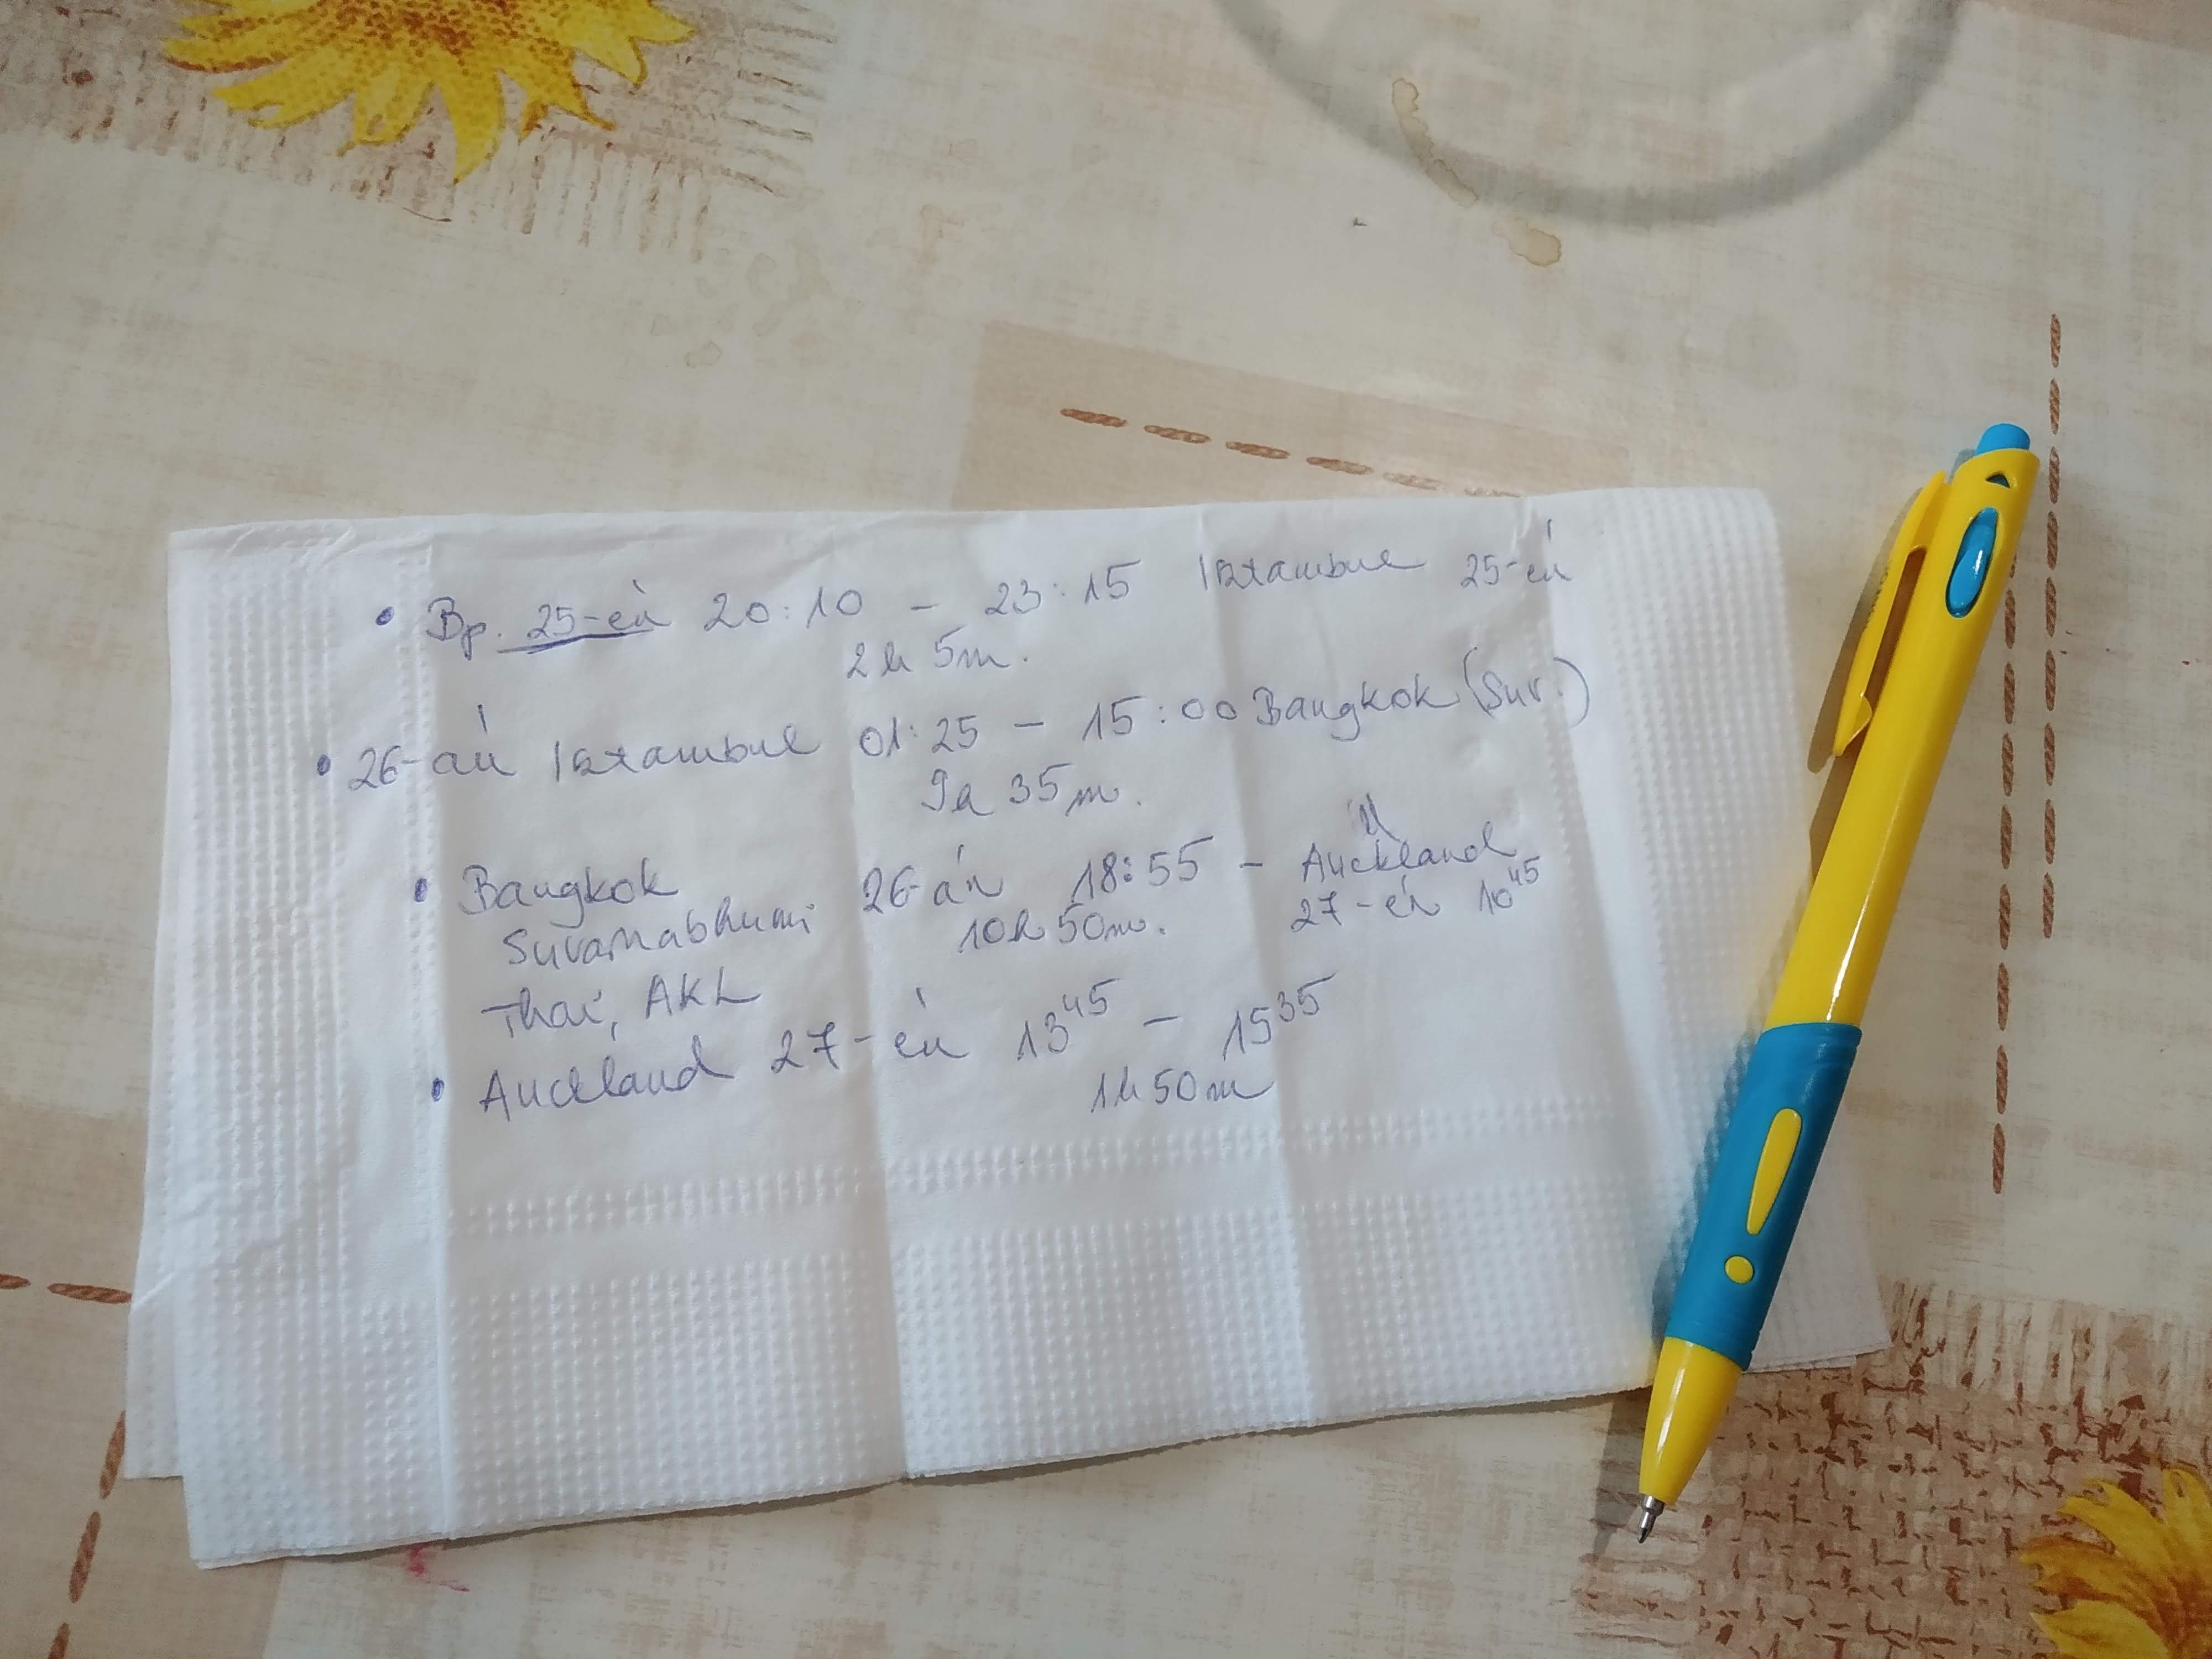 • Bp. 25-én 20:10 – 23:15 Isztambul 25-én
2h 5m.
• 26-án Isztambul 01:25 – 15:00 Bangkok (Suv.)
9h 35m.
• Bangkok 26-án 18:55 – Auckland
Suvarnabhumi 10h 50m. 27-én 10⁴⁵
Thai, AKL
• Auckland 27-én 13⁴⁵ – 15³⁵
1h 50m